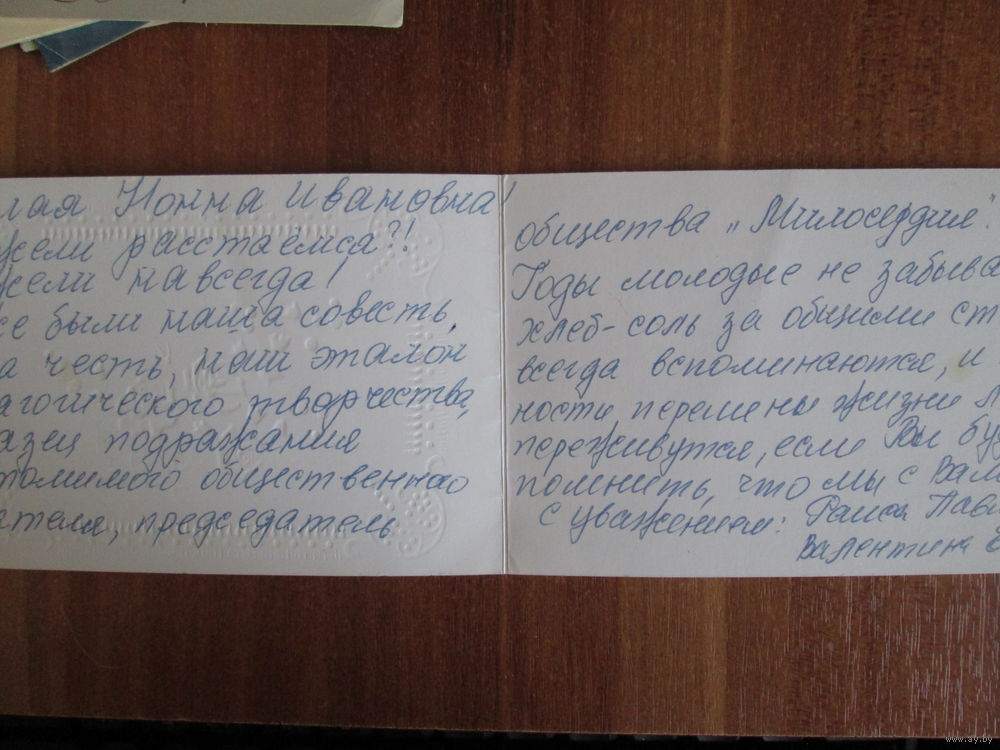 лая Нонна Ивановна!
жели расстаёмся?!
жели навсегда!
се были наша совесть,
а честь, наш эталон
агогического творчества,
азец подражания
томимого общественного
ателя, председатель
общества „Милосердия".
Годы молодые не забыва
хлеб-соль за общими ст
всегда вспоминаются, и
ности перемены жизни л
переживутся, если Вы бу
помнить, что мы с Вам
с уважением: Раиса Пав
Валентина
www.ay.by